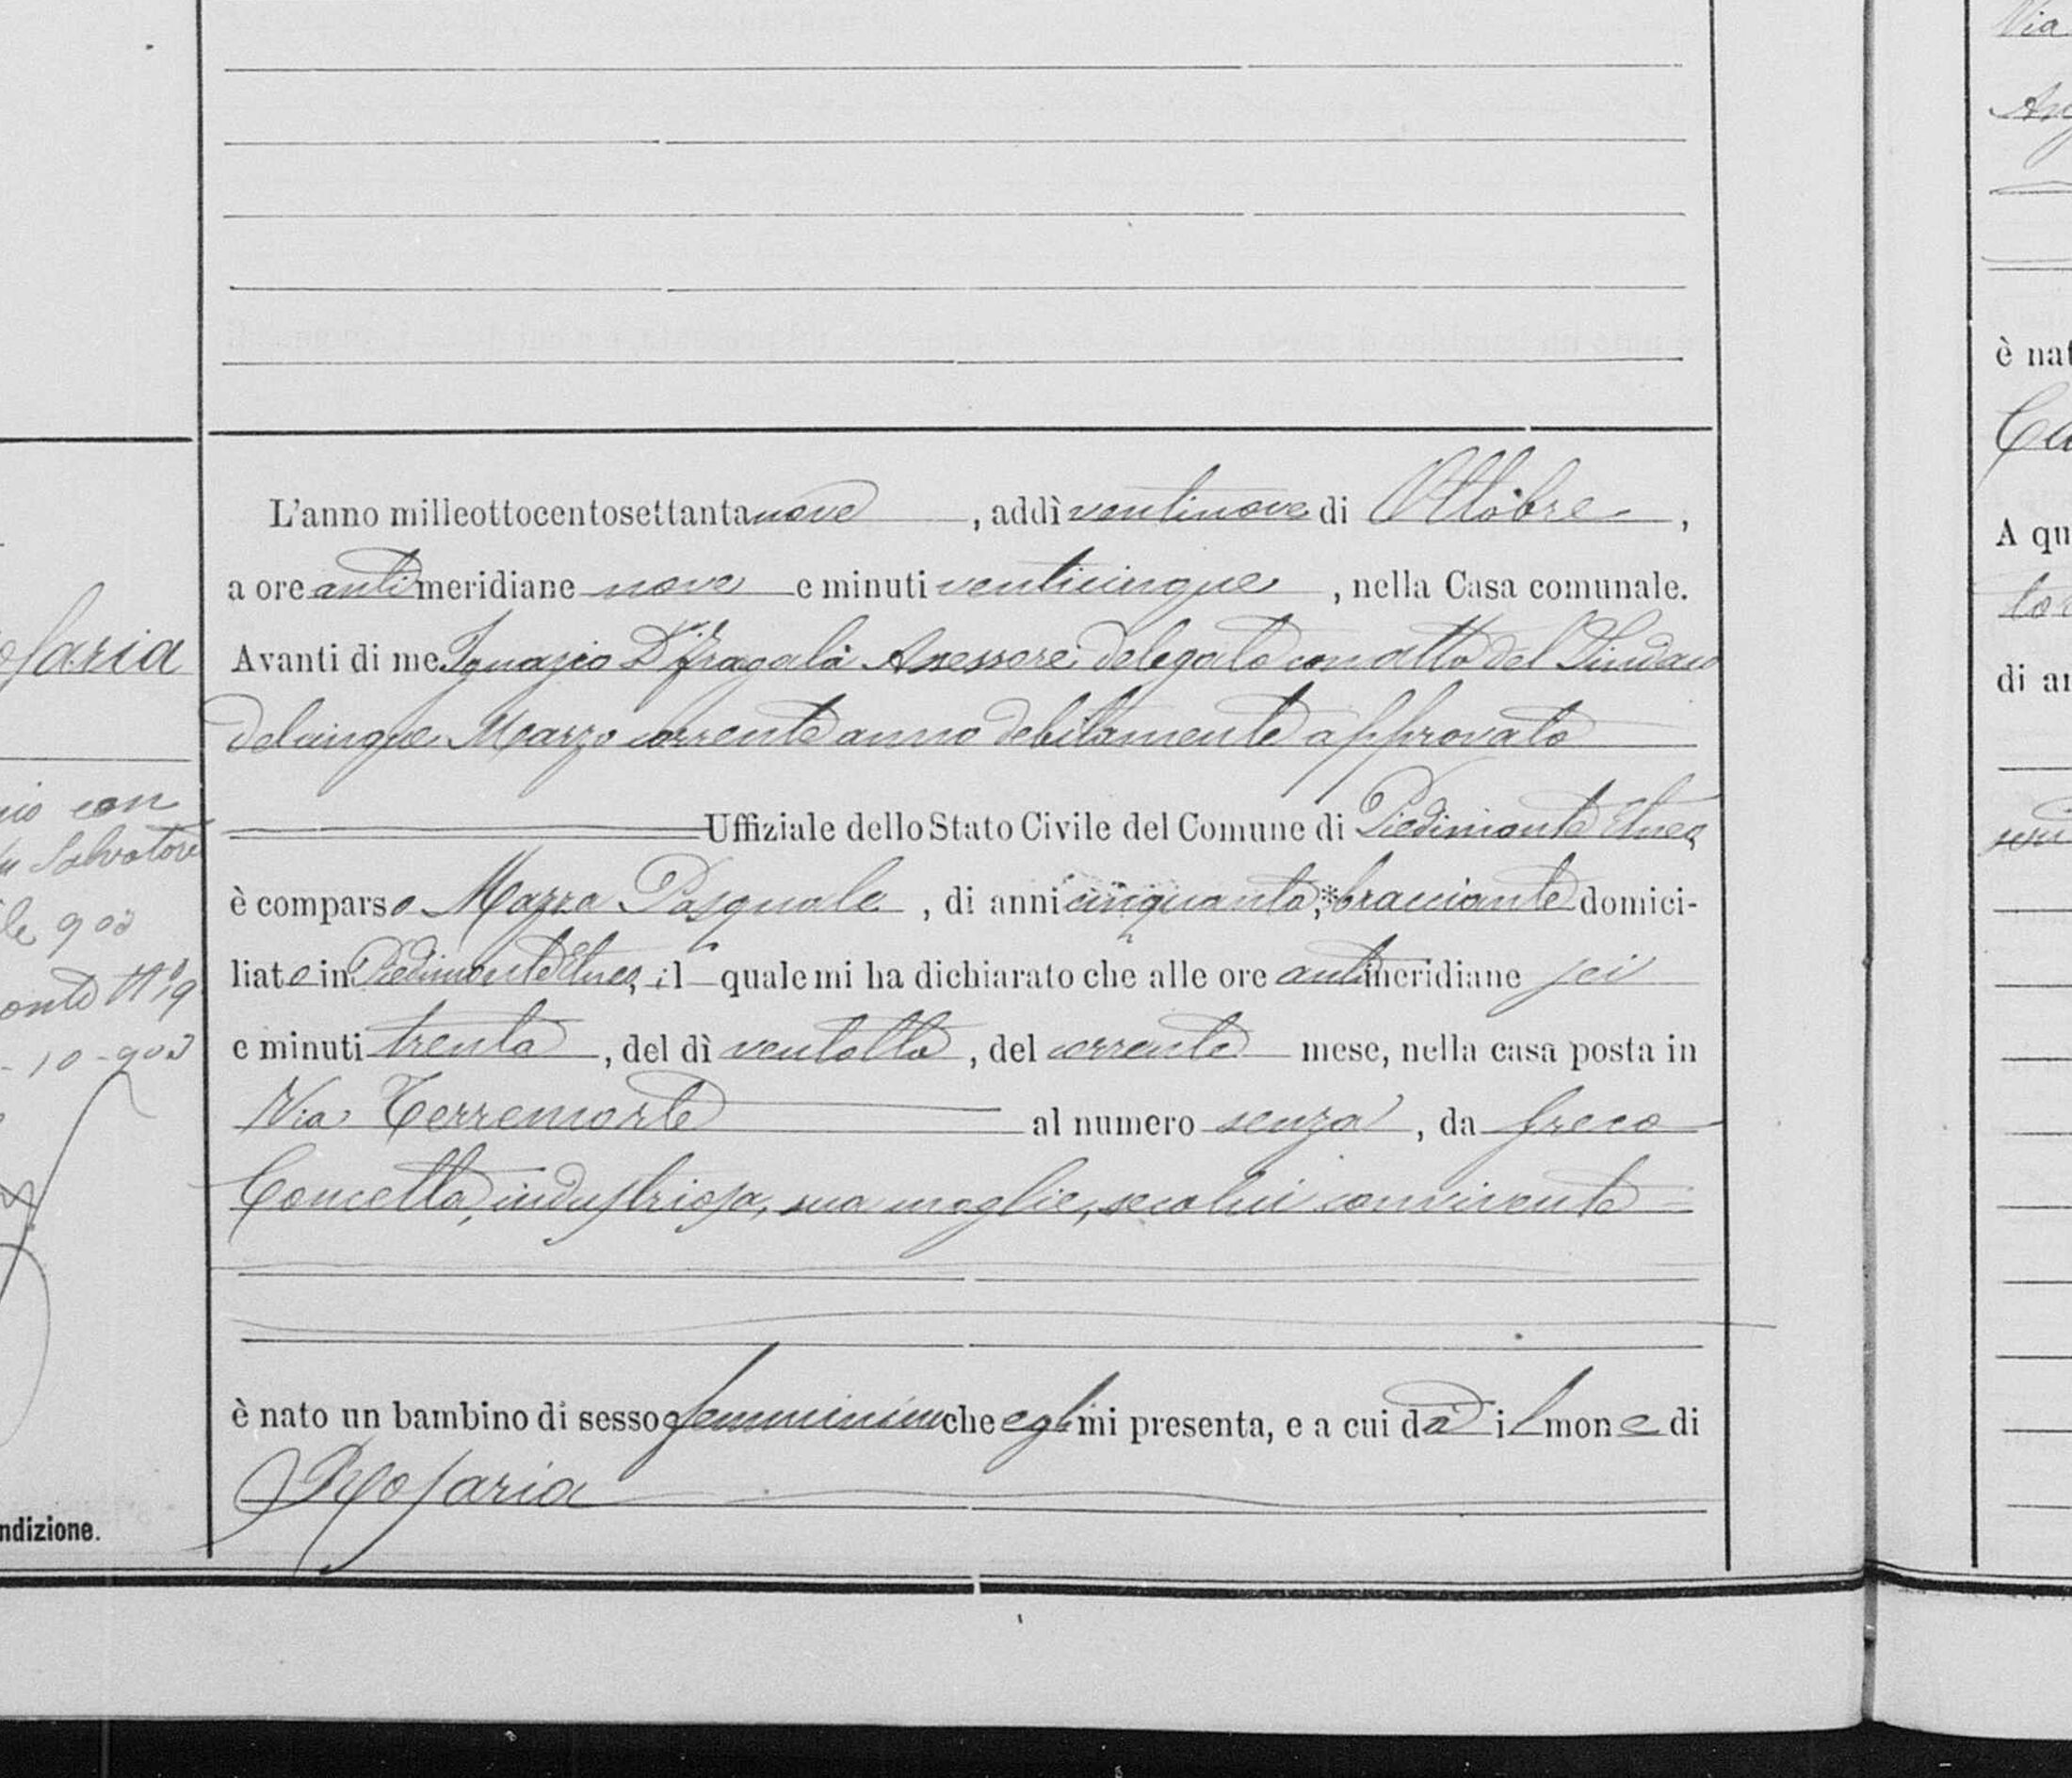 ofaria
nio con
fu Salvatore
le 903
onte N°19
- 10-903
ndizione.
L'anno milleottocentosettantanove, addì ventinove di Ottobre,
a ore antimeridiane nove e minuti venticinque, nella Casa comunale.
Avanti di me Ignazio D'Fragalà Assessore delegato con atto del Sindaco
del cinque Marzo corrente anno debitamente approvato
Uffiziale dello Stato Civile del Comune di Piedimonte Etneo,
è comparso Mazza Pasquale, di anni cinquanta,* bracciante domici-
liato in Piedimonte Etneo, il quale mi ha dichiarato che alle ore antimeridiane sei
e minuti trenta, del dì ventotto, del corrente mese, nella casa posta in
Via Terremorte al numero senza, da Greco
Concetta, industriosa, sua moglie, secolui convivente
è nato un bambino di sesso femminino che egli mi presenta, e a cui dà il mone di
Rosaria
Via
è nat
Ca
A qu
di an